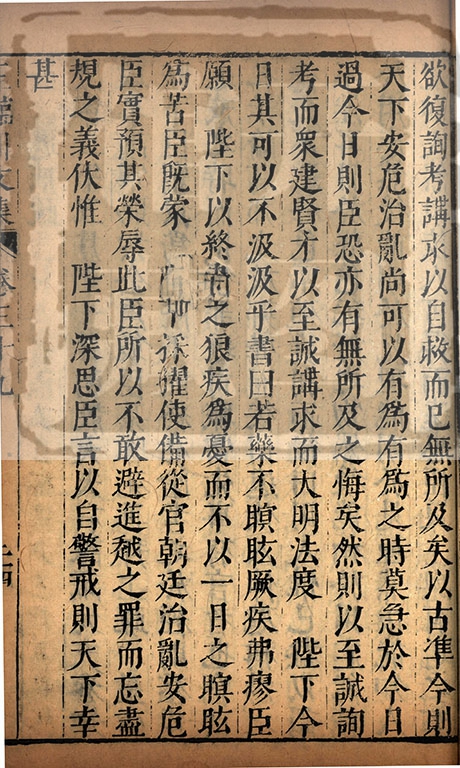 欲復詢考講求以自救而已無所及矣以古凖今則
天下安危治亂尚可以有爲有爲之時莫急於今日
過今日則臣恐亦有無所及之悔矣然則以至誠詢
考而衆建賢才以至誠講求而大明法度 陛下今
日其可以不汲汲乎書曰若藥不瞑眩厥疾弗瘳臣
願 陛下以終身之狼疾爲憂而不以一日之瞑眩
爲苦臣既蒙 陛下採擢使備從官朝廷治亂安危
臣實預其榮辱此臣所以不敢避進越之罪而忘盡
規之義伏惟 陛下深思臣言以自警戒則天下幸
甚
文集 卷三十九 十四